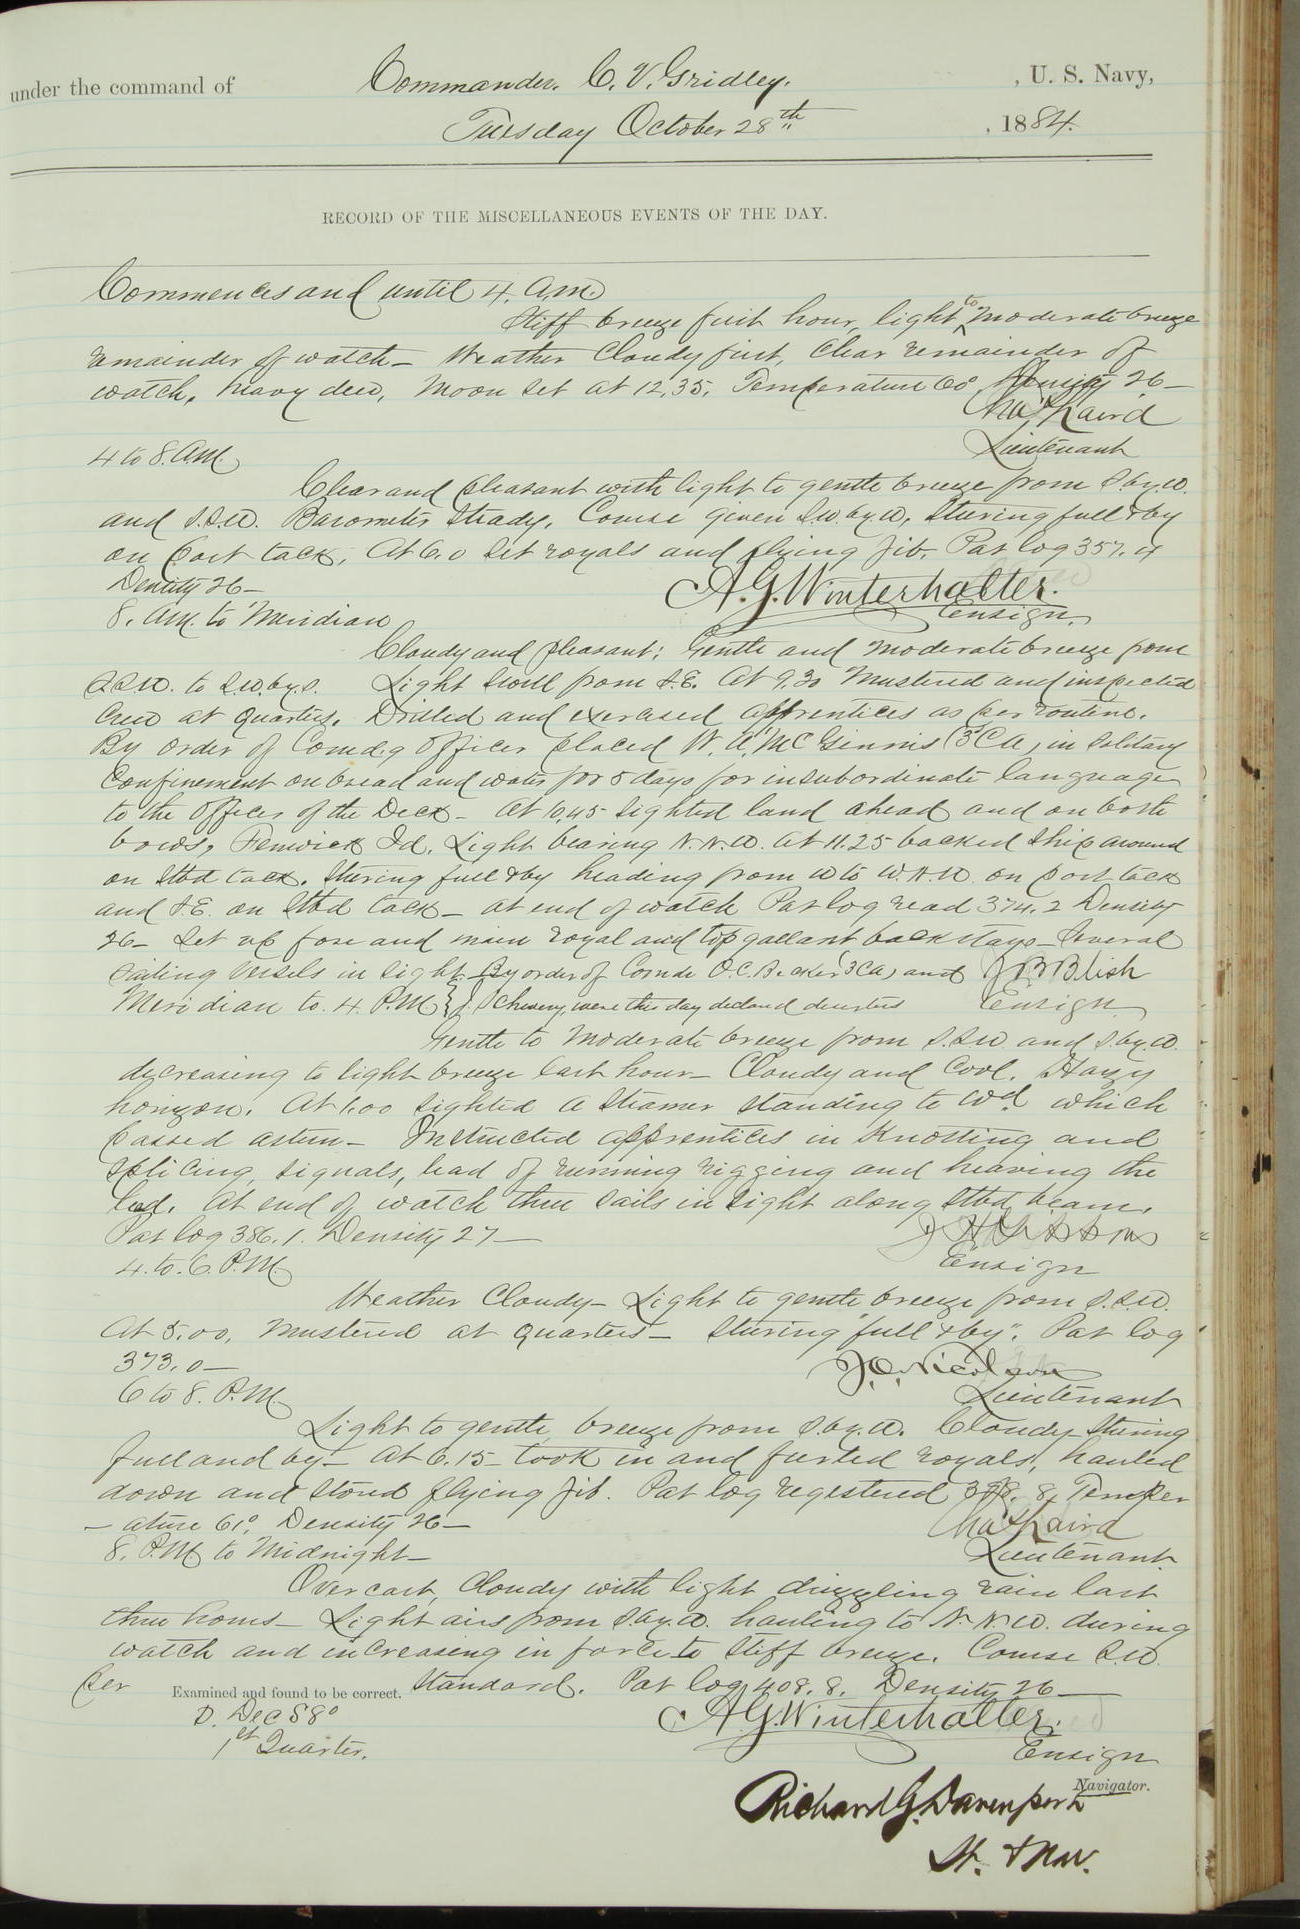 under the command of Commander. C. V. Gridley. , U. S. Navy,
Tuesday October 28th , 1884.
RECORD OF THE MISCELLANEOUS EVENTS OF THE DAY.
Commences and until 4. A.M.
Stiff breeze first hour, light to moderate breeze
remainder of watch_ Weather Cloudy first, Clear remainder of
watch. heavy dew, Moon set at 12,35. Temperature 60° Density 26_
Chas Laird
Lieutenant
4 to 8. A.M.
Clear and pleasant with light to gentle breeze from S.by.W.
and S.S.W. Barometer Steady. Course given S.W. by.W, Steering full & by
on Port tack. At 6.0 Set royals and flying Jib. Pat log 357.4
Density 26_
A.G. Winterhalter.
Ensign.
8. A.M. to Meridian
Cloudy and pleasant; Gentle and Moderate breeze from
S.S.W. to S.W.by.S. Light Swell from S.E. At 9,30 Mustered and inspected
Crew at Quarters. Drilled and exercised apprentices as per routine.
By order of Comd.g Officer placed W. A. McGinnis (3CA) in Solitary
Confinement on bread and water for 5 days for insubordinate language
to the Officer of the Deck_ At 10,45 Sighted land ahead and on both
bows, Fenwick Id. Light bearing N.N.W. at 11.25 backed Ship around
on Stbd tack. Steering full & by heading from W to W.N.W. on port tack
and S.E. on Stbd tack_ at end of watch Pat log read 374.2 Density
26_ Set up fore and main royal and top gallant back stays_ Several
Sailing Vessels in sight. By order of Comdr O.C. Becker (3CA) and
J B Blish
Meridian to. 4. P.M. } J. Cheveny, were this day declared deserters
Ensign
Gentle to Moderate breeze from S.S.W. and S.by.W.
decreasing to light breeze last hour_ Cloudy and Cool. Hazy
horizon. At 1.00 Sighted a Steamer Standing to Wd which
Passed astern_ Instructed apprentices in Knotting and
Splicing, Signals, lead of running rigging and heaving the
lead. At end of watch three Sails in Sight along Stbd beam.
Pat log 386.1. Density 27_
J H Gibbons
Ensign
4. to. 6. P.M.
Weather Cloudy_ Light to gentle breeze from S.S.W.
At 5.00, Mustered at Quarters_ Steering "full & by". Pat log
373.0_
Lieutenant
6 to 8. P.M.
Light to gentle breeze from S.by.W. Cloudy Steering
full and by_ At 6.15_ took in and furled royals, hauled
down and Stowed flying Jib. Pat log registered 8. Temper
_ ature 61°. Density 26_
Chas Laird
Lieutenant.
8. P.M. to Midnight_
Overcast, Cloudy with light drizzling rain last
three hours_ Light airs from S.by.W. hauling to N.N.W. during
watch and increasing in force to Stiff breeze. Course S.W.
Per Standard. Pat log 408.8. Density 26_
Examined and found to be correct.
D. Dec 88°
1st Quarter.
A.G. Winterhalter.
Ensign
Navigator.
Richard G. Davenport
Lt. & Nav.